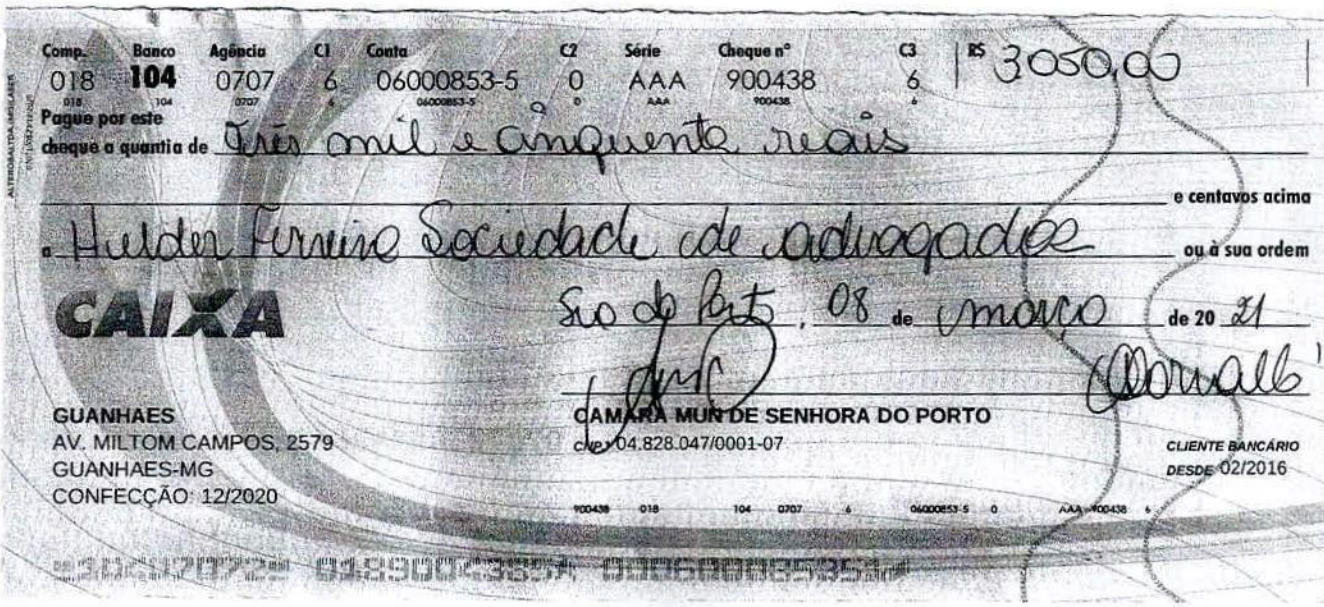 Comp. Banco Agência C1 Conta C2 Série Cheque nº C3 R$ 3050,00
018 104 0707 6 06000853-5 0 AAA 900438 6
018 104 0707 6 06000853-5 0 AAA 900438 6
Pague por este
cheque a quantia de Três mil e cinquenta reais
e centavos acima
a Helder Ferreira Sociedade de advogados ou à sua ordem
CAIXA
Sra do Porto, 08 de março de 20 21
GUANHAES
AV. MILTOM CAMPOS, 2579
GUANHAES-MG
CONFECÇÃO: 12/2020
CAMARA MUN DE SENHORA DO PORTO
CNPJ 04.828.047/0001-07
CLIENTE BANCÁRIO
DESDE 02/2016
900438 018 104 0707 6 06000853-5 0 AAA-900438 6